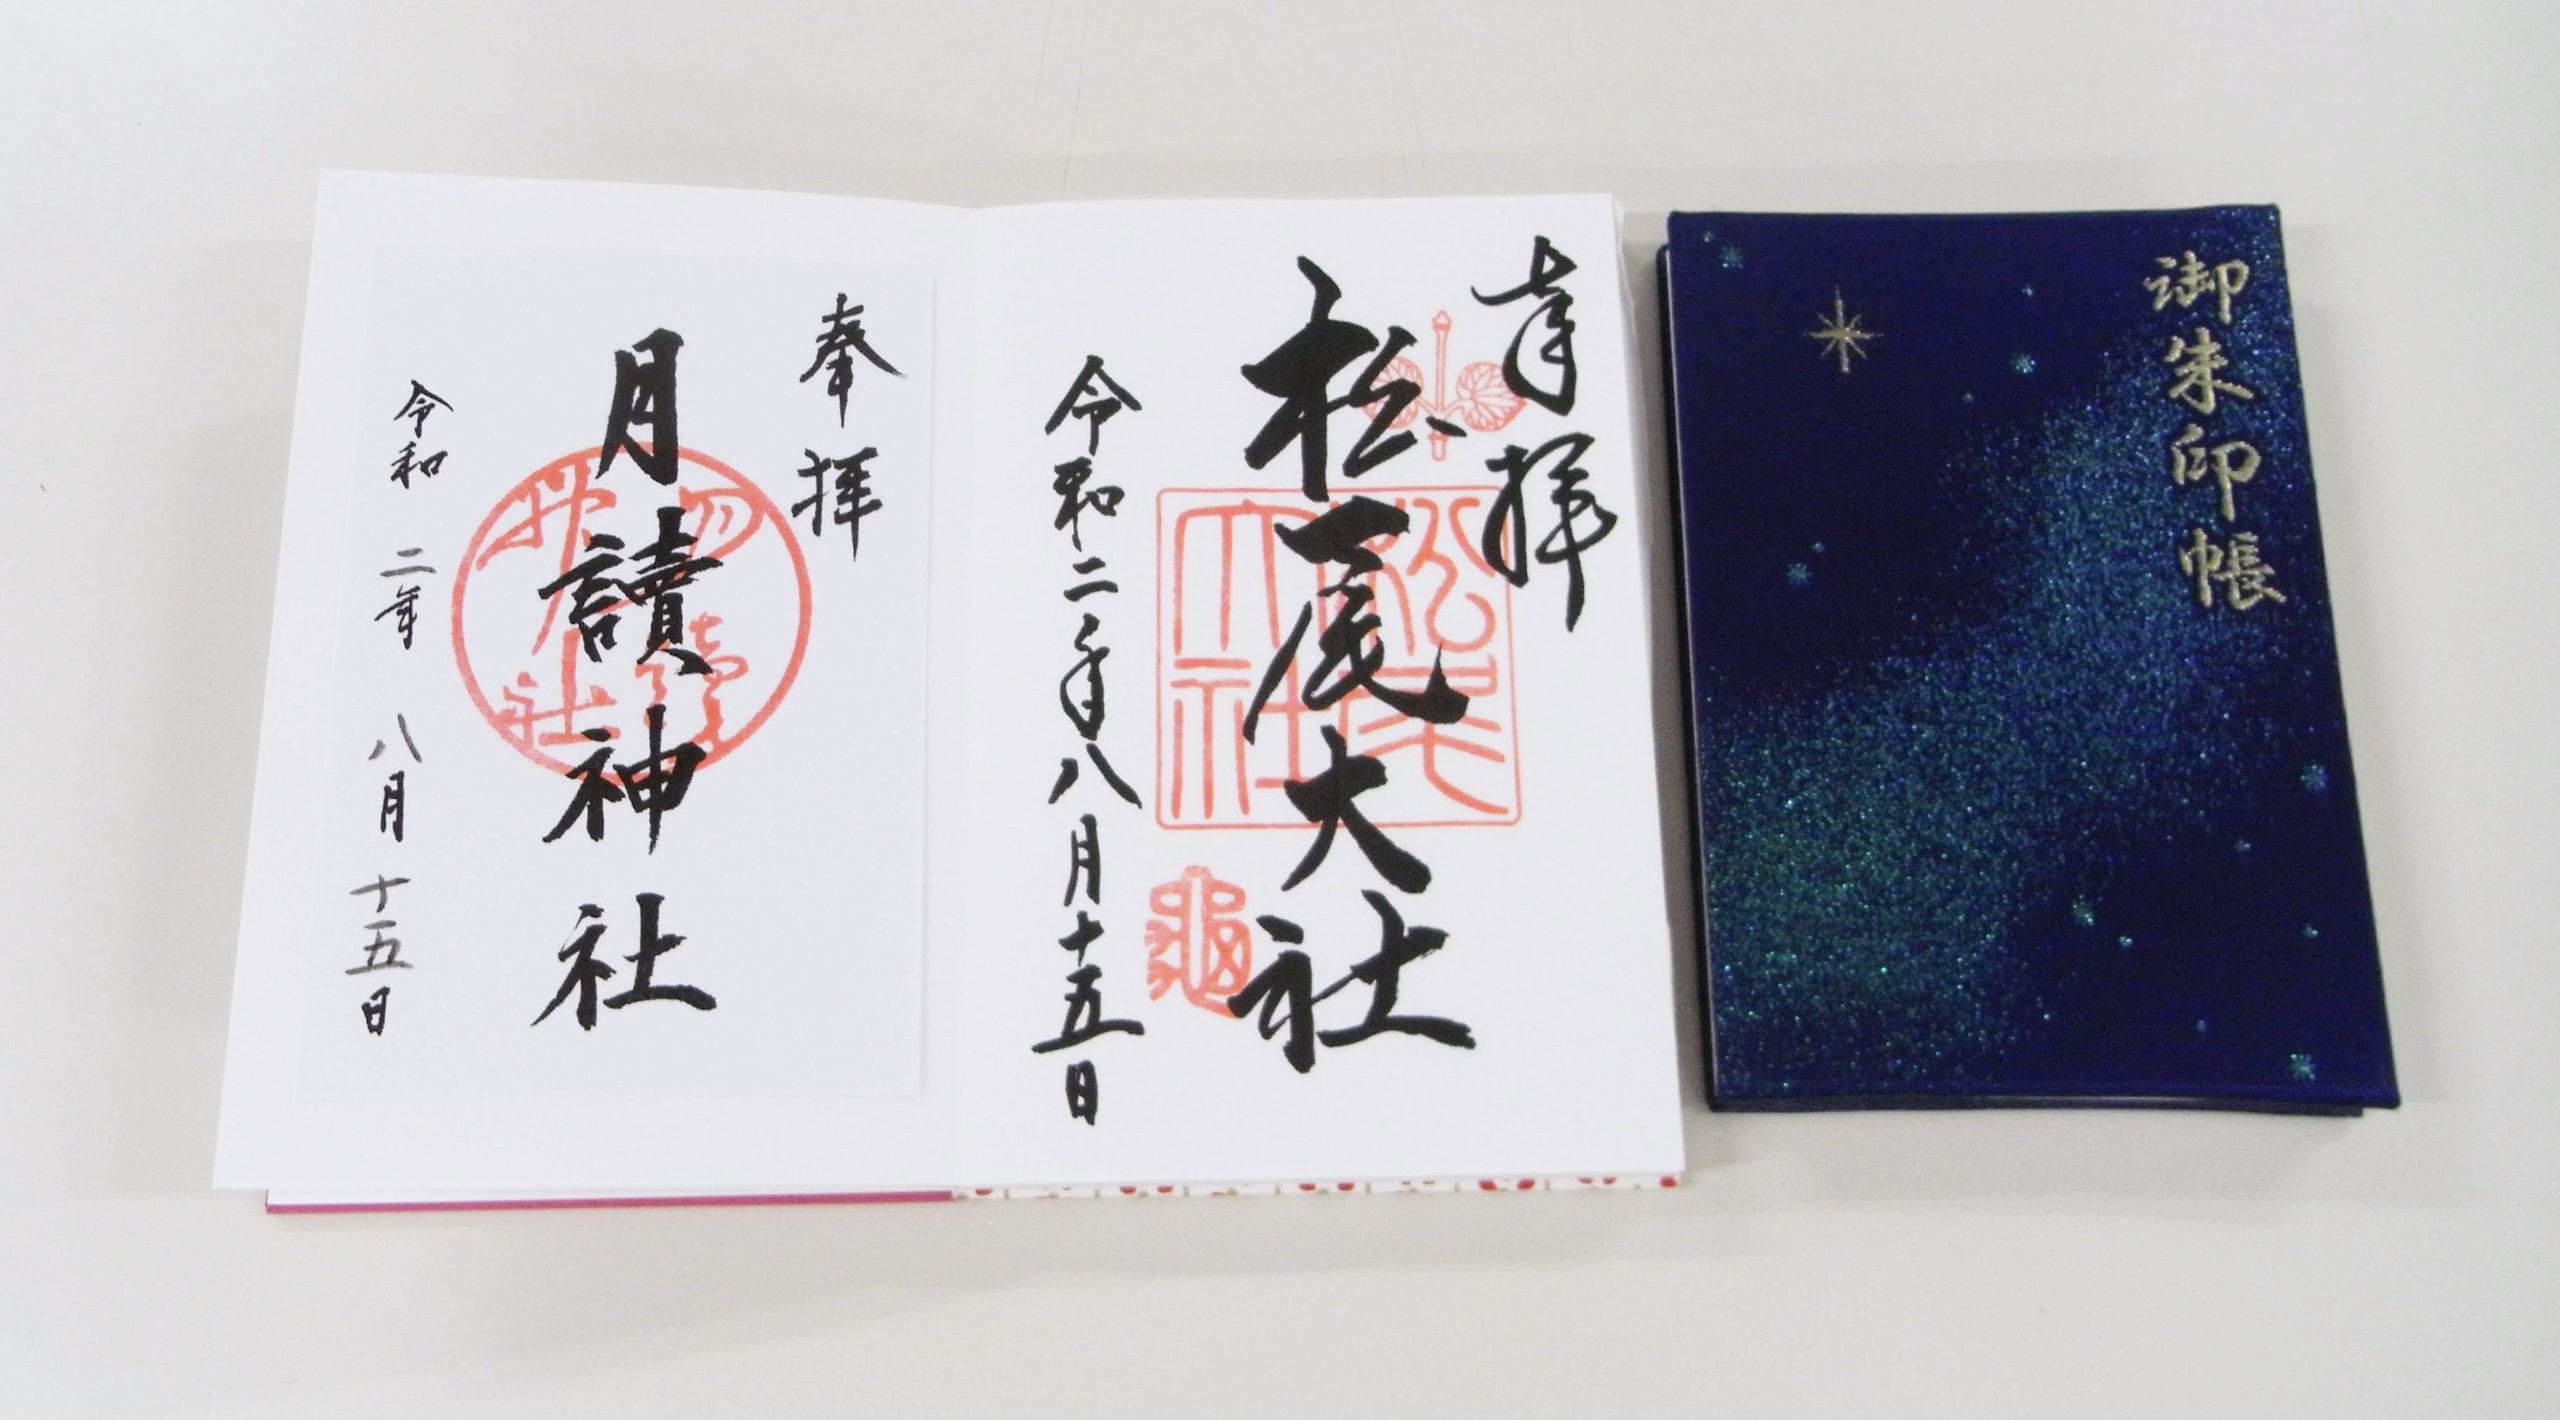 御朱印帳
奉拝
松尾大社
松尾大社
亀
令和二年八月十五日
奉拝
月讀神社
令和 二年 八月 十五日